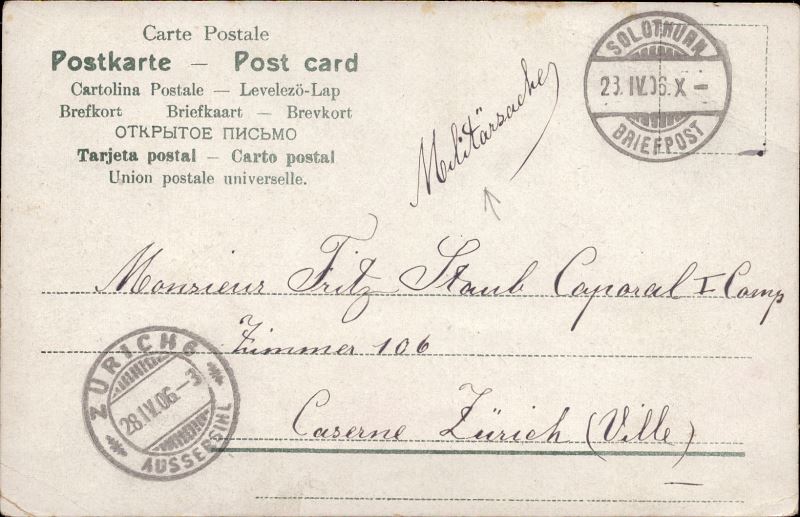 Carte Postale
Postkarte — Post card
Cartolina Postale — Levelezö-Lap
Brefkort Briefkaart — Brevkort
ОТКРЫТОЕ ПИСЬМО
Tarjeta postal — Carto postal
Union postale universelle.
Militärsache
SOLOTHURN
28.IV.06.X—
BRIEFPOST
Monsieur Fritz Staub Caporal I Comp
Zimmer 106
Caserne Zürich (Ville)
ZÜRICH 6
28.IV.06.—3
AUSSERSIHL